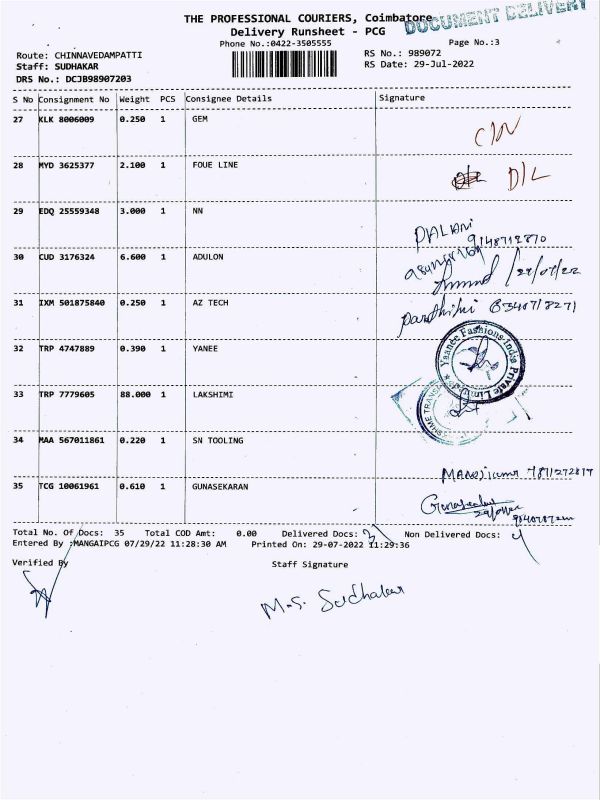 THE PROFESSIONAL COURIERS, Coimbatore
DOCUMENT DELIVERY
Delivery Runsheet - PCG
Phone No.:0422-3505555
Page No.:3
Route: CHINNAVEDAMPATTI
RS No.: 989072
Staff: SUDHAKAR
RS Date: 29-Jul-2022
DRS No.: DCJB98907203
S No Consignment No Weight PCS Consignee Details Signature
27 KLK 8006009 0.250 1 GEM
28 MYD 3625377 2.100 1 FOUE LINE D/L
29 EDQ 25559348 3.000 1 NN
PALANi
30 CUD 3176324 6.600 1 ADULON
31 IXM 501875840 0.250 1 AZ TECH
32 TRP 4747889 0.390 1 YANEE
Yaanee Fashions India Private Limited
33 TRP 7779605 88.000 1 LAKSHIMI
34 MAA 567011861 0.220 1 SN TOOLING
35 TCG 10061961 0.610 1 GUNASEKARAN
Total No. Of Docs: 35 Total COD Amt: 0.00 Delivered Docs: 31 Non Delivered Docs: 4
Entered By :MANGAIPCG 07/29/22 11:28:30 AM Printed On: 29-07-2022 11:29:36
Verified By Staff Signature
M.S. Sudhakar